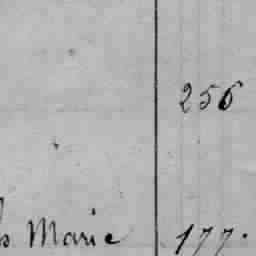 256
Marie 177.